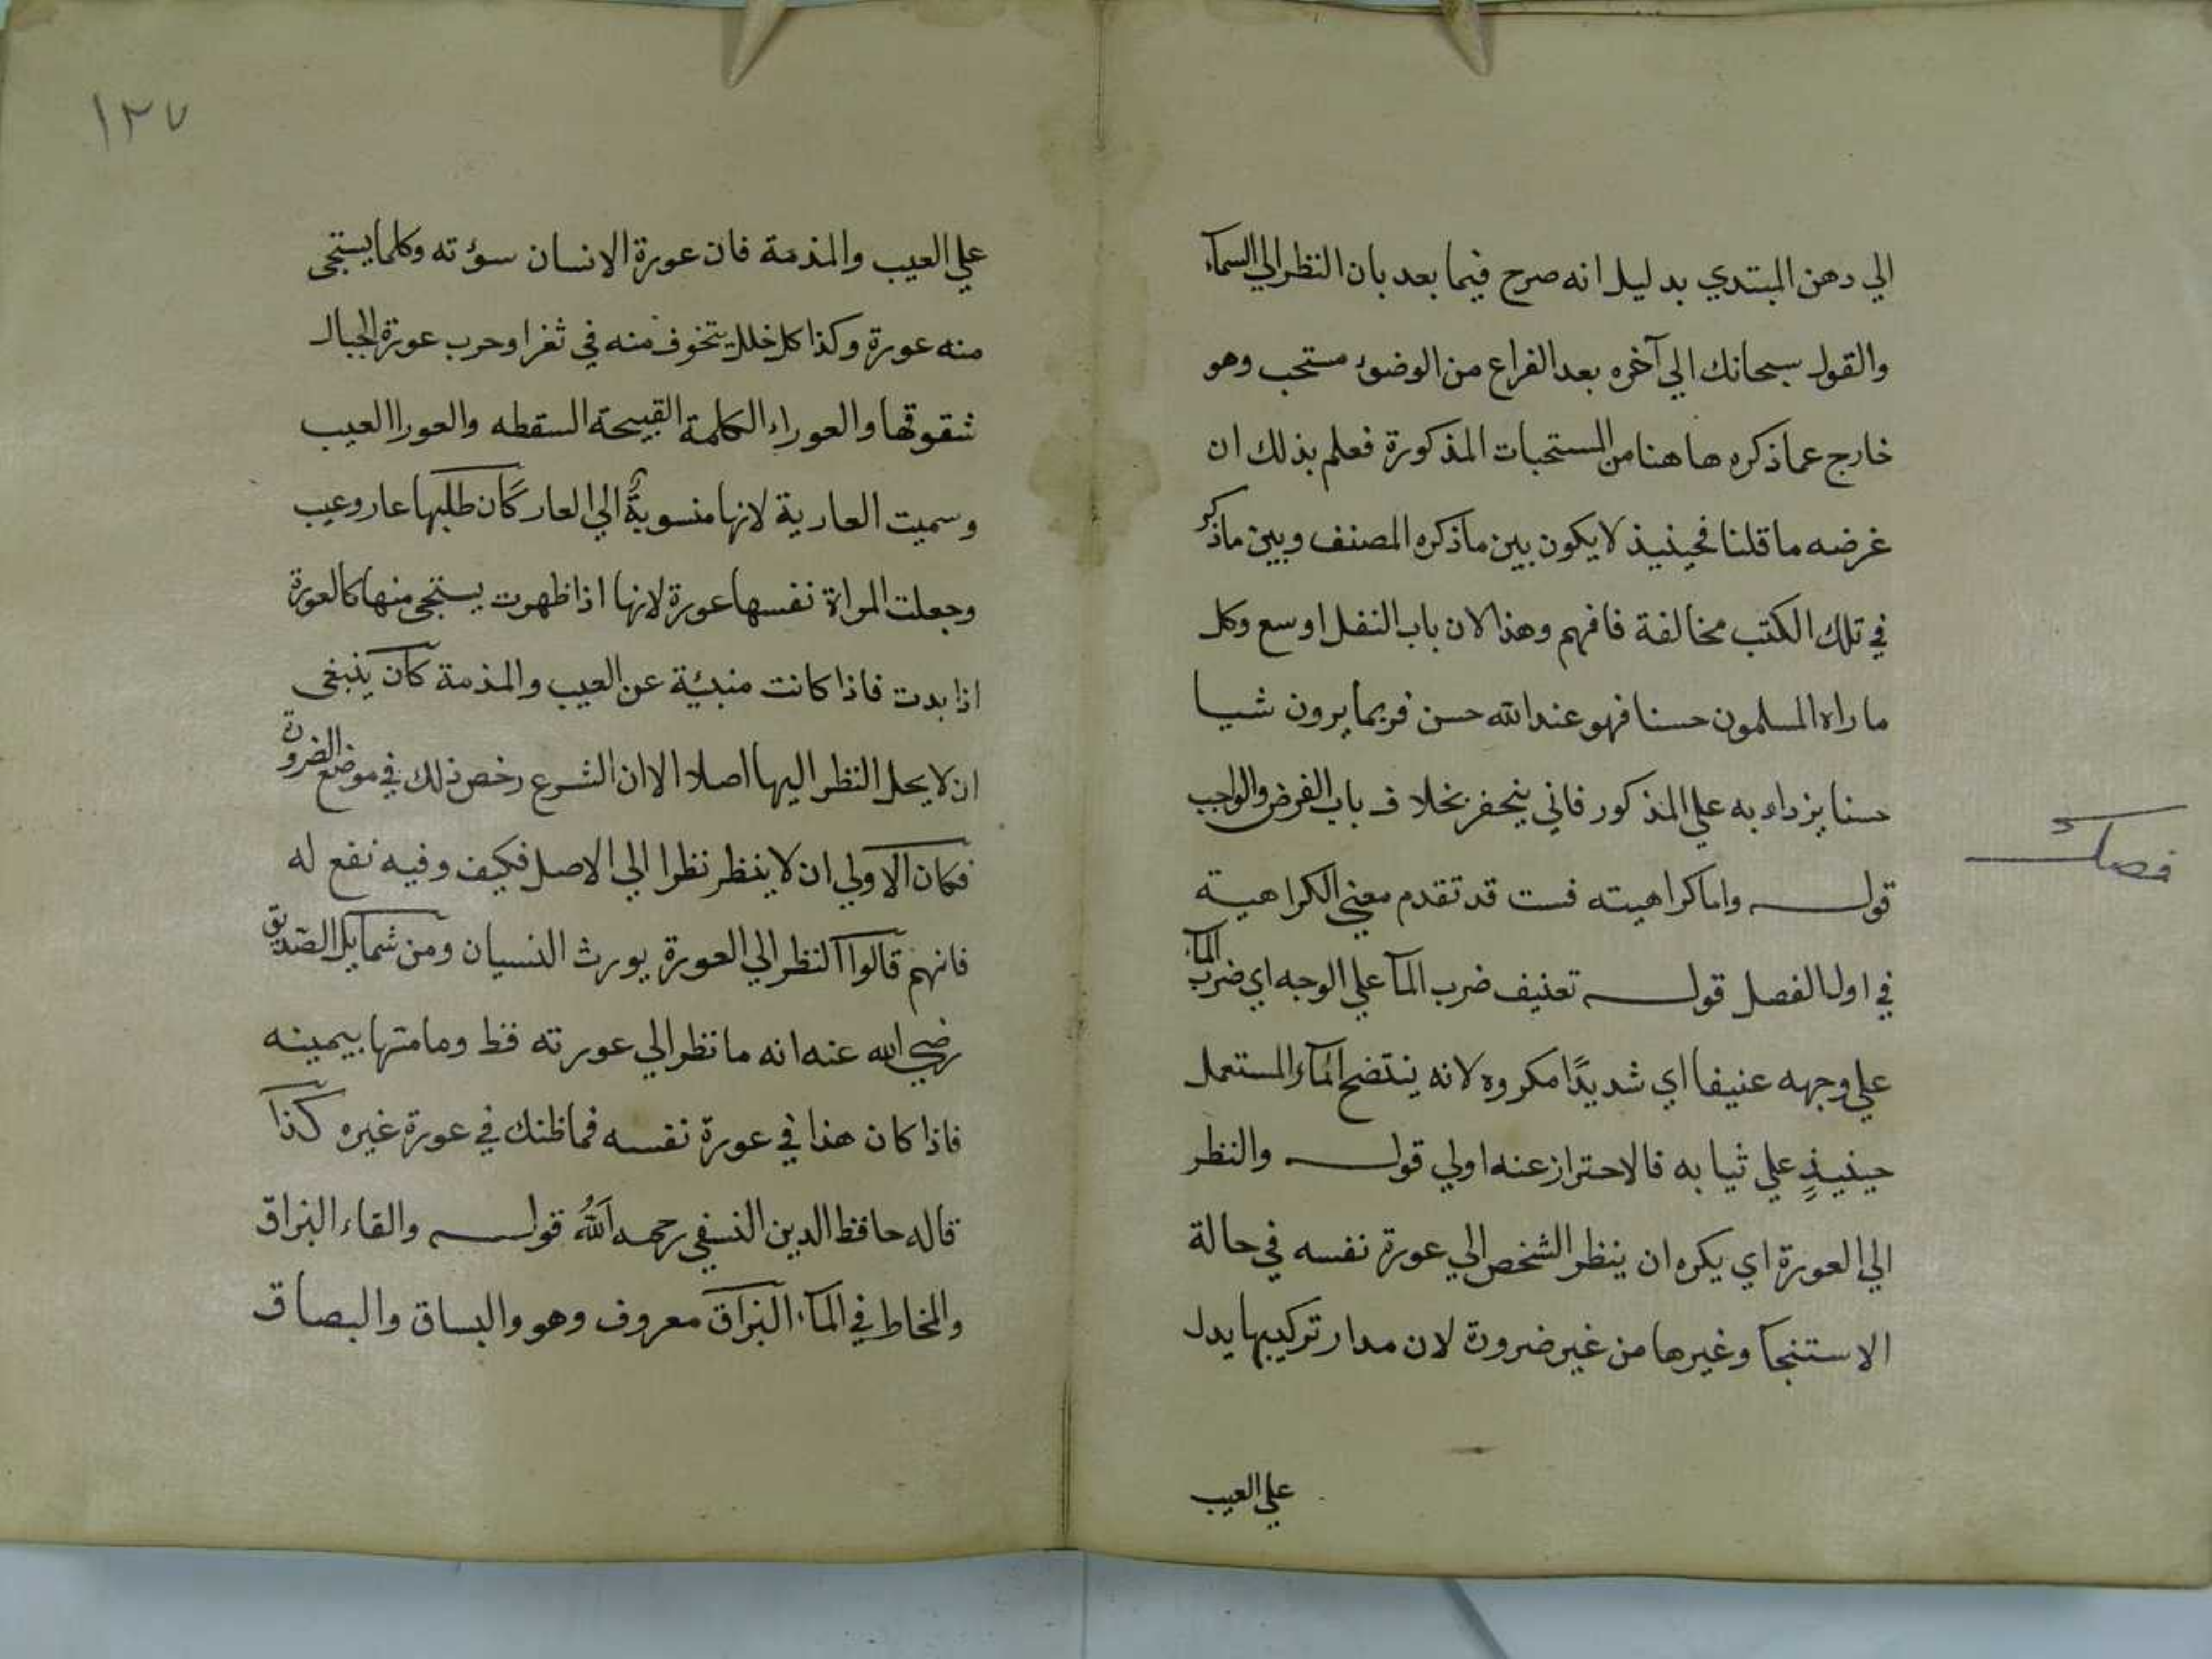 الي دهن المبتدي بدليل انه صرح فيما بعد بان النظر الي السمآء
والقول سبحانك الي آخره بعد الفراغ من الوضوء مستحب وهو
خارج عما ذكره هاهنا من المستحبات المذكورة فعلم بذلك ان
غرضه ما قلنا فحينيذ لا يكون بين ما ذكره المصنف وبين ما ذكر
في تلك الكتب مخالفة فافهم وهذا لان باب النفل اوسع وكل
ما راه المسلمون حسنا فهو عند الله حسن فربما يرون شيا
حسنا يزداد به علي المذكور فاني ينحفر بخلاف باب الفرض والواجب
فصل
قوله واما كراهيته فست قد تقدم معني الكراهية
في اول الفصل قوله تعنيف ضرب المآ علي الوجه اي ضرب المآء
علي وجهه عنيفا اي شديدًا مكروه لانه ينتضح المآء المستعمل
حينيذٍ علي ثيابه فالاحتراز عنه اولي قوله والنظر
الي العورة اي يكره ان ينظر الشخص الي عورة نفسه في حالة
الاستنجآ وغيرها من غير ضرورة لان مدار تركيبها يدل
علي العيب
١٣٧
علي العيب والمذمة فان عورة الانسان سوءته وكلما يستحى
منه عورة وكذا كل خلل يتخوف منه في ثغر او حرب عورة الجبال
شقوقها والعوراء الكلمة القبيحة السقطه والعورا العيب
وسميت العارية لانها منسوبةٌ الي العار كأن طلبها عار وعيب
وجعلت المراة نفسها عورة لانها اذا ظهرت يستحى منها كالعورة
اذا بدت فاذا كانت منبئة عن العيب والمذمة كان ينبغى
ان لا يحل النظر اليها اصلا الا ان الشرع رخص ذلك في موضع الضرورة
فكان الاولي ان لا ينظر نظرا الي الاصل فكيف وفيه نفع له
فانهم قالوا النظر الي العورة يورث النسيان ومن شمايل الصّديق
رضي الله عنه انه ما نظر الي عورته قط وما مسها بيمينه
فاذا كان هذا في عورة نفسه فما ظنك في عورة غيره كذا
قاله حافظ الدين النسفي رحمه اللهُ قوله والقاء البزاق
والمخاط في المآء البزاق معروف وهو والبساق والبصاق